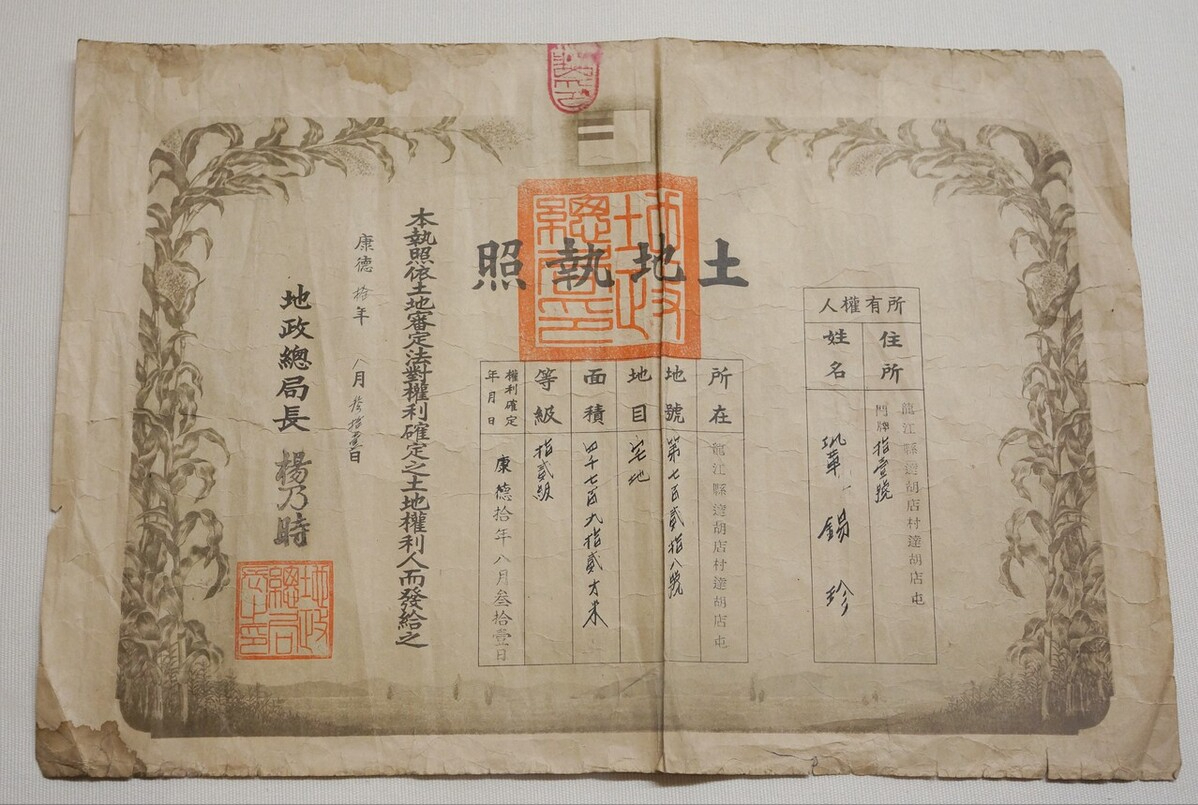 土地執照
所有權人
住所
龍江縣達胡店村達胡店屯
門牌拾壹號
姓名
鞏錫珍
所在
龍江縣達胡店村達胡店屯
地號
第七百貳拾八號
地目
宅地
面積
四千七百九拾貳方米
等級
拾貳級
權利確定
年月日
康德拾年八月叁拾壹日
本執照依土地審定法對權利確定之土地權利人而發給之
康德拾年八月叁拾壹日
地政總局長 楊乃時
地政
總局印
地政
總局